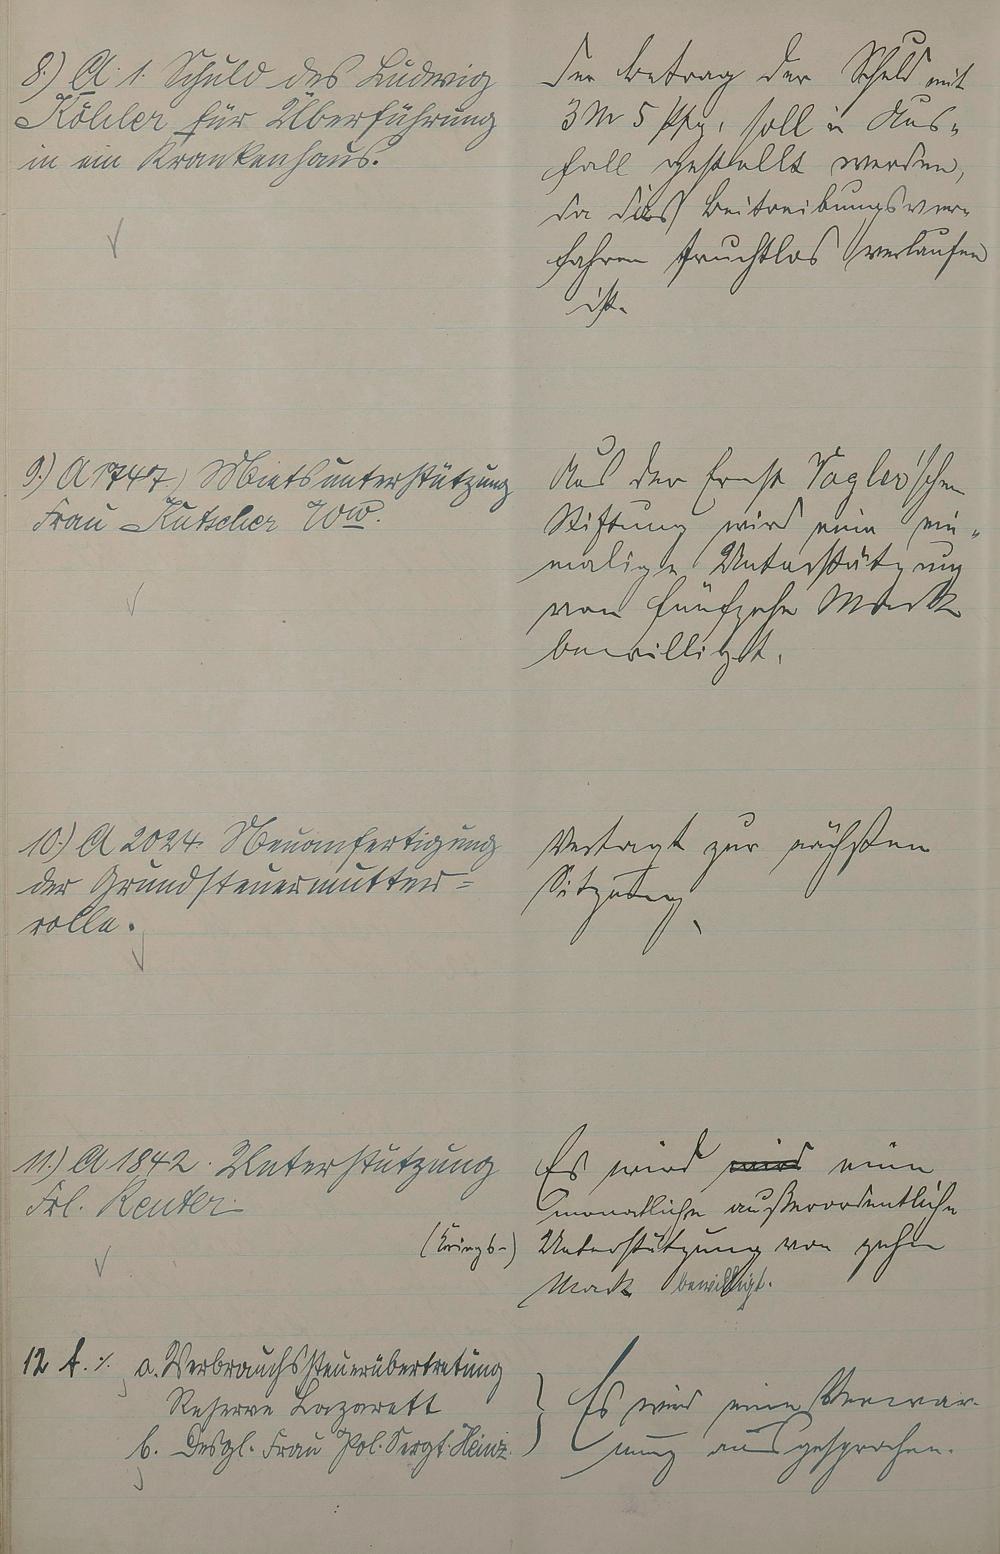 8.) A. 1. Schuld des Ludwig
Köhler für Überführung
in ein Krankenhaus.
Der Betrag der Schuld mit
3 M 5 Pfg. soll in Aus-
fall gestellt werden,
da das Beitreibungsver-
fahren fruchtlos verlaufen
ist.
9.) A 1747) Mietsunterstützung
Frau Kutscher Ww.
Aus der Ernst Vogler'schen
Stiftung wird eine ein-
malige Unterstützung
von fünfzehn Mark
bewilligt.
10.) A 2024. Neuanfertigung
der Grundsteuermutter-
rolle.
Vertagt zur nächsten
Sitzung.
11.) A 1842. Unterstützung
Frl. Reuter.
Es wird wird eine
monatliche außerordentliche
(Kriegs-) Unterstützung von zehn
Mark bewilligt.
12 A. ./. a. Verbrauchssteuerübertretung
Reserve Lazarett
b. Desgl. Frau Pol. Sergt. Heinz.
Es wird eine Verwar-
nung ausgesprochen.